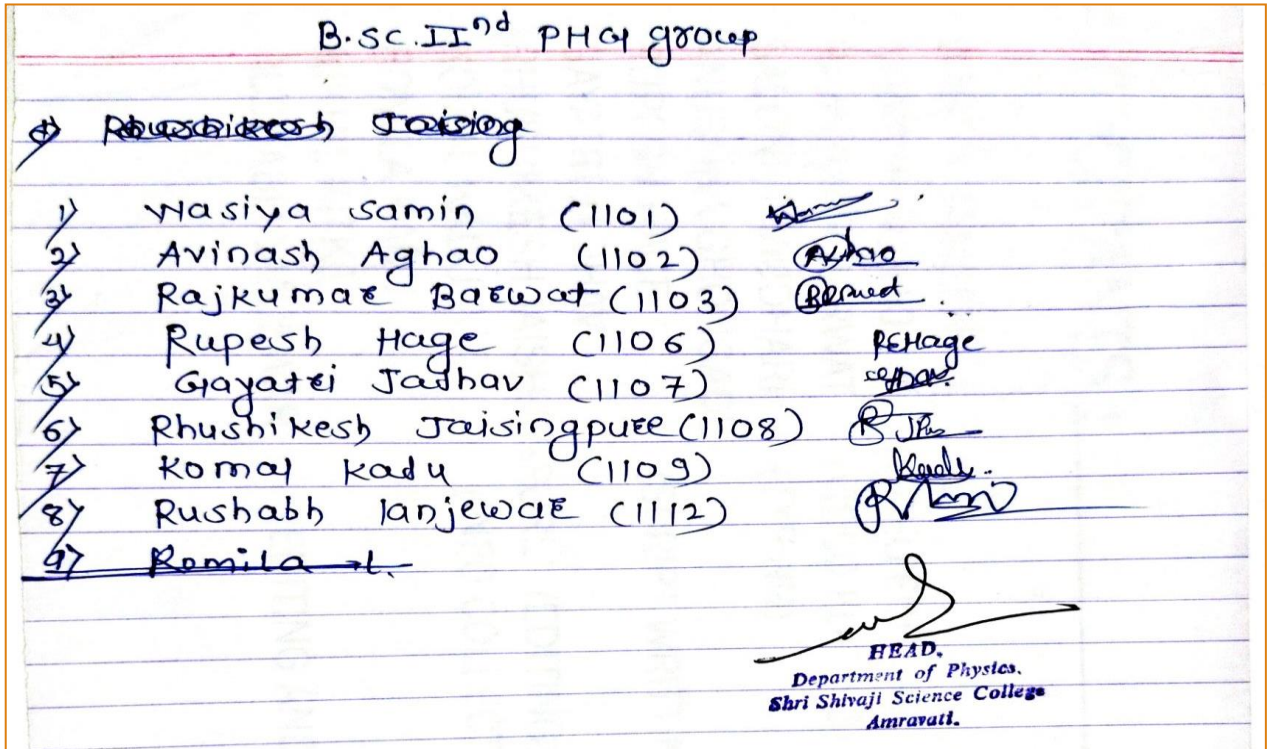 B.SC.IInd PHG group
Rhushikesh Jaising
1) Wasiya Samin (1101)
2) Avinash Aghao (1102) AAhao
3) Rajkumar Barwat (1103)
4) Rupesh Hage (1106) REHage
5) Gayatri Jadhav (1107)
6) Rhushikesh Jaisingpure (1108)
7) Komal Kadu (1109) Kadu.
8) Rushabh lanjewar (1112)
9) Romila L.
HEAD,
Department of Physics.
Shri Shivaji Science College
Amravati.